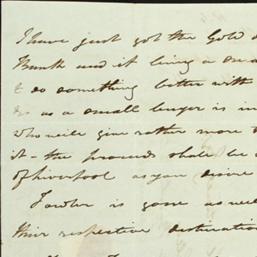 I have just got the Gold
Bank and it being a
to do something better with
as a small buyer is in
who will give rather more
it - the proceeds shall be
of Liverpool as you desire
Fowler is gone as
their respective destination